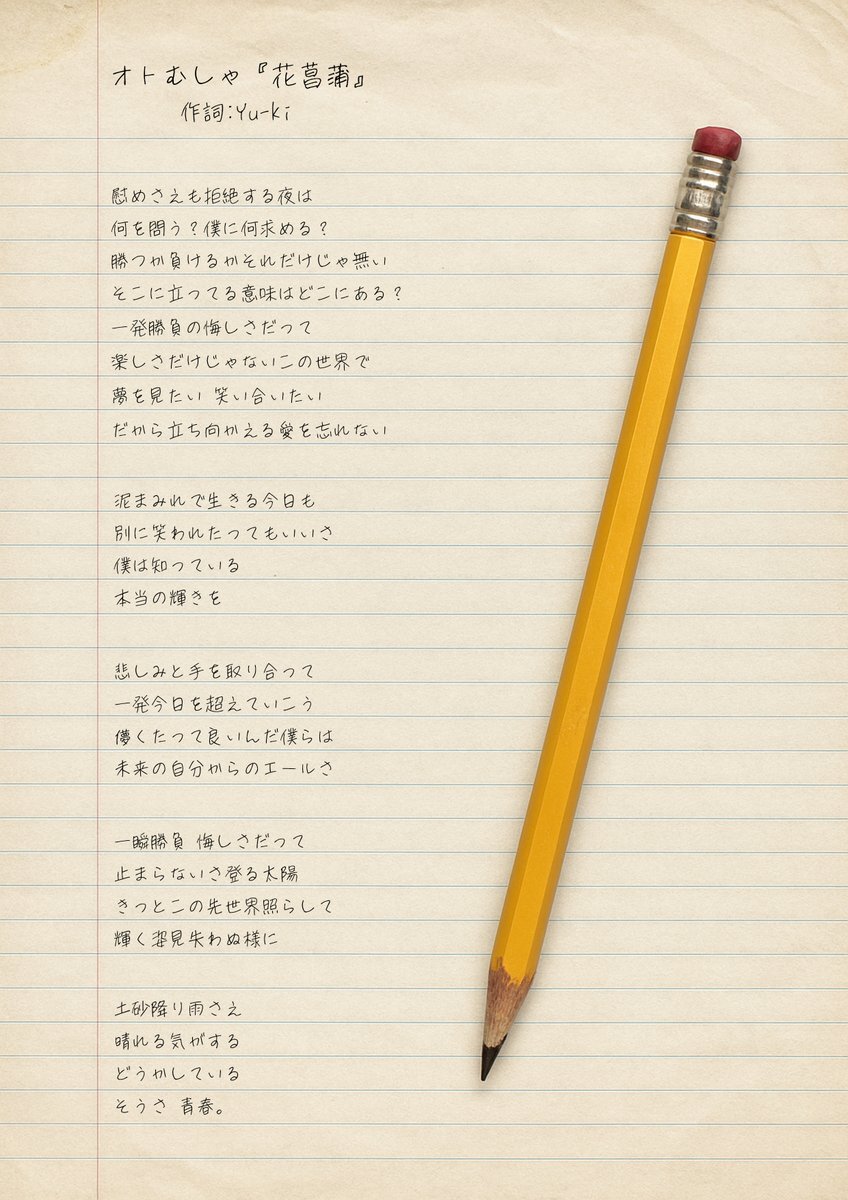 オトむしゃ『花菖蒲』
作詞:Yu-ki
慰めさえも拒絶する夜は
何を問う?僕に何求める?
勝つか負けるかそれだけじゃ無い
そこに立ってる意味はどこにある?
一発勝負の悔しさだって
楽しさだけじゃないこの世界で
夢を見たい 笑い合いたい
だから立ち向かえる愛を忘れない
泥まみれで生きる今日も
別に笑われたってもいいさ
僕は知っている
本当の輝きを
悲しみと手を取り合って
一発今日を超えていこう
儚くたって良いんだ僕らは
未来の自分からのエールさ
一瞬勝負 悔しさだって
止まらないさ登る太陽
きっとこの先世界照らして
輝く姿見失わぬ様に
土砂降り雨さえ
晴れる気がする
どうかしている
そうさ 青春。